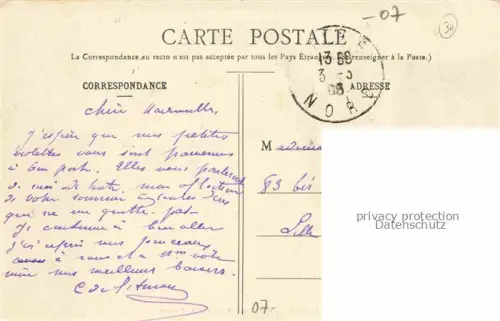 -07
30
CARTE POSTALE
(La Correspondance au recto n'est pas acceptée par tous les Pays Étrangers. Se renseigner à la Poste.)
CORRESPONDANCE
ADRESSE
13
3
08
NORD
J'espère que mes petites
violettes vous sont parvenues
à bon port. Elles vous parleront
de moi de toute mon affection
de votre souvenir
qui ne me quitte pas
Je continue à bien aller
J'ai repris mes pinceaux
à vous et à votre
mère nos meilleurs baisers.
M
83 bis
Lille
07-
privacy protection
Datenschutz